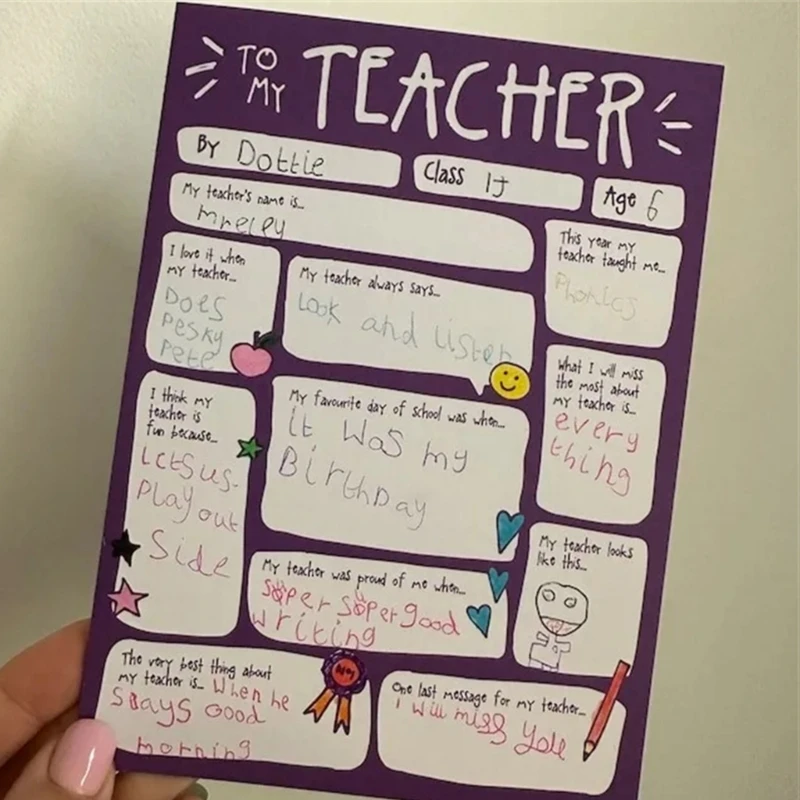 TO MY TEACHER
BY Dottie
Class 1J
Age 6
My teacher's name is...
mreley
This year my
teacher taught me...
Phonics
I love it when
my teacher...
Does
Pesky
Pete
My teacher always says...
Look and listen
What I will miss
the most about
my teacher is...
every
thing
I think my
teacher is
fun because...
Letsus
Playout
Side
My favourite day of school was when...
it was my
Birthday
My teacher looks
like this...
My teacher was proud of me when...
super super good
writing
The very best thing about
my teacher is... When he
Says Good
morning
One last message for my teacher...
I will miss you